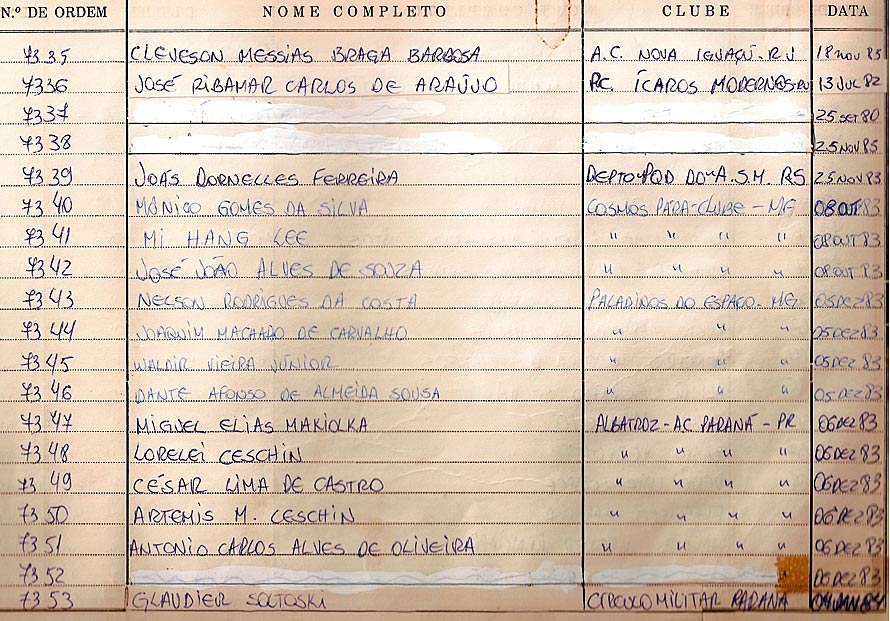 N.º DE ORDEM NOME COMPLETO CLUBE DATA
7335 CLEVESON MESSIAS BRAGA BARBOSA A.C. NOVA IGUAÇÚ-RJ 18 NOV 85
7336 JOSÉ RIBAMAR CARLOS DE ARAÚJO PC. ÍCAROS MODERNOS 13 JUL 82
7337 25 SET 80
7338 25 NOV 85
7339 JOÁS DORNELLES FERREIRA DEPTO PQD DO A.S.M. RS 25 NOV 83
7340 MÔNICO GOMES DA SILVA COSMOS PARA-CLUBE - MG 08 OUT 83
7341 MI HANG LEE " " " " 08 OUT 83
7342 JOSÉ JOÃO ALVES DE SOUZA " " " " 08 OUT 83
7343 NELSON RODRIGUES DA COSTA PALADINOS DO ESPAÇO - MG 05 DEZ 83
7344 JOAQUIM MACHADO DE CARVALHO " " " 05 DEZ 83
7345 WALDIR VIEIRA JÚNIOR " " " 05 DEZ 83
7346 DANTE AFONSO DE ALMEIDA SOUSA " " " 05 DEZ 83
7347 MIGUEL ELIAS MAKIOLKA ALBATROZ - AC PARANÁ - PR 06 DEZ 83
7348 LORELEI CESCHIN " " " " 06 DEZ 83
7349 CÉSAR LIMA DE CASTRO " " " " 06 DEZ 83
7350 ARTEMIS M. CESCHIN " " " " 06 DEZ 83
7351 ANTONIO CARLOS ALVES DE OLIVEIRA " " " " 06 DEZ 83
7352 " 06 DEZ 83
7353 GLAUDIER SOLTOSKI CIRCULO MILITAR PARANÁ 04 JAN 84